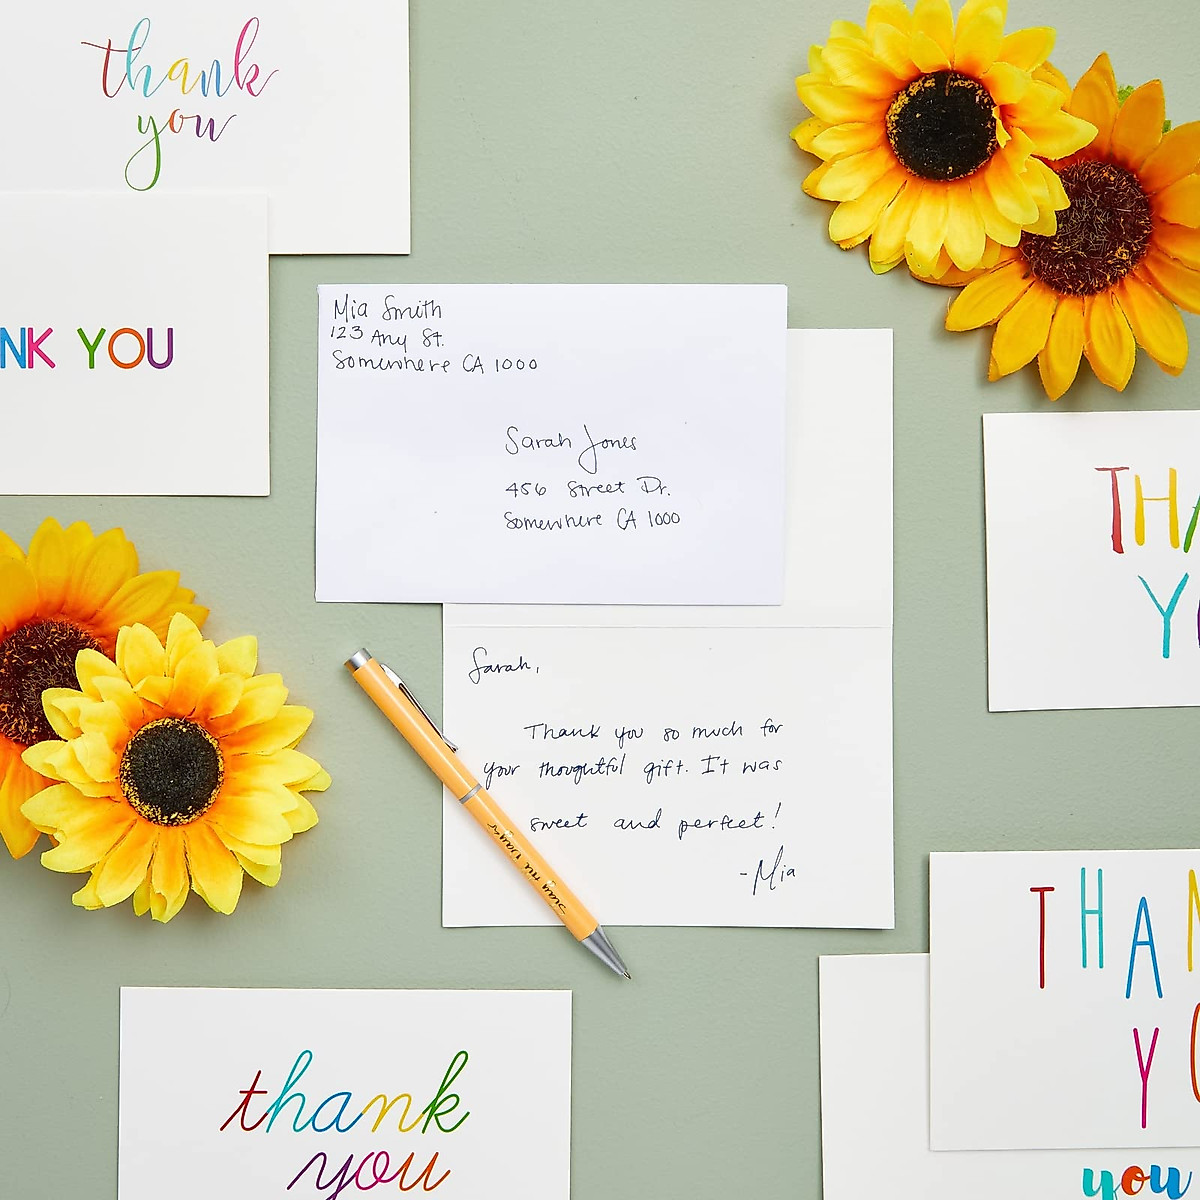 thank
you
NK YOU
Mia Smith
123 Any St.
Somewhere CA 1000
Sarah Jones
456 Street Dr.
Somewhere CA 1000
Sarah,
Thank you so much for
your thoughtful gift. It was
sweet and perfect!
-Mia
THA
YO
THAN
YO
you
thank
you